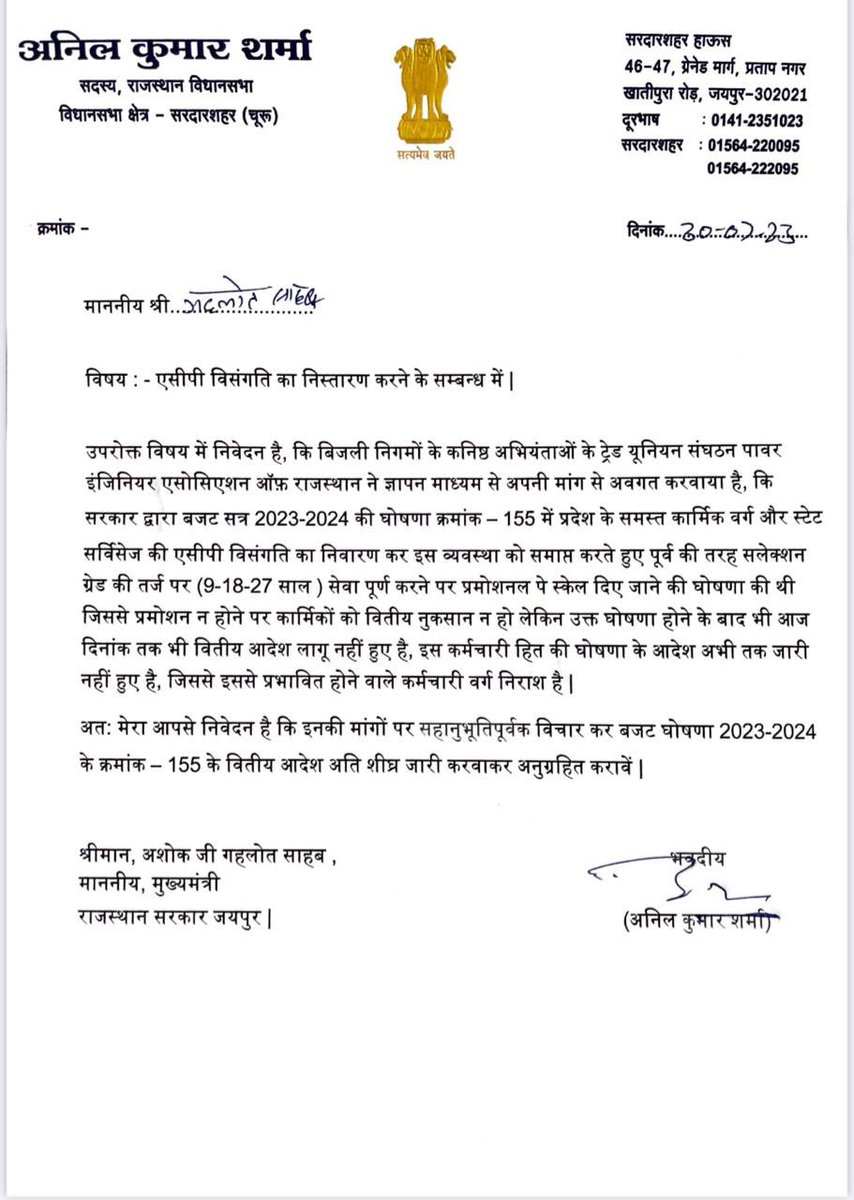 अनिल कुमार शर्मा
सदस्य, राजस्थान विधानसभा
विधानसभा क्षेत्र – सरदारशहर (चूरू)
सत्यमेव जयते
सरदारशहर हाऊस
46-47, ग्रेनेड मार्ग, प्रताप नगर
खातीपुरा रोड़, जयपुर-302021
दूरभाष : 0141-2351023
सरदारशहर : 01564-220095
01564-222095
क्रमांक –
दिनांक....30-07-23...
माननीय श्री..गहलोत साहब
विषय : - एसीपी विसंगति का निस्तारण करने के सम्बन्ध में |
उपरोक्त विषय में निवेदन है, कि बिजली निगमों के कनिष्ठ अभियंताओं के ट्रेड यूनियन संघठन पावर
इंजिनियर एसोसिएशन ऑफ़ राजस्थान ने ज्ञापन माध्यम से अपनी मांग से अवगत करवाया है, कि
सरकार द्वारा बजट सत्र 2023-2024 की घोषणा क्रमांक – 155 में प्रदेश के समस्त कार्मिक वर्ग और स्टेट
सर्विसेज की एसीपी विसंगति का निवारण कर इस व्यवस्था को समाप्त करते हुए पूर्व की तरह सलेक्शन
ग्रेड की तर्ज पर (9-18-27 साल ) सेवा पूर्ण करने पर प्रमोशनल पे स्केल दिए जाने की घोषणा की थी
जिससे प्रमोशन न होने पर कार्मिकों को वितीय नुकसान न हो लेकिन उक्त घोषणा होने के बाद भी आज
दिनांक तक भी वितीय आदेश लागू नहीं हुए है, इस कर्मचारी हित की घोषणा के आदेश अभी तक जारी
नहीं हुए है, जिससे इससे प्रभावित होने वाले कर्मचारी वर्ग निराश है |
अत: मेरा आपसे निवेदन है कि इनकी मांगों पर सहानुभूतिपूर्वक विचार कर बजट घोषणा 2023-2024
के क्रमांक – 155 के वितीय आदेश अति शीघ्र जारी करवाकर अनुग्रहित करावें |
श्रीमान, अशोक जी गहलोत साहब ,
माननीय, मुख्यमंत्री
राजस्थान सरकार जयपुर |
भवदीय
(अनिल कुमार शर्मा)